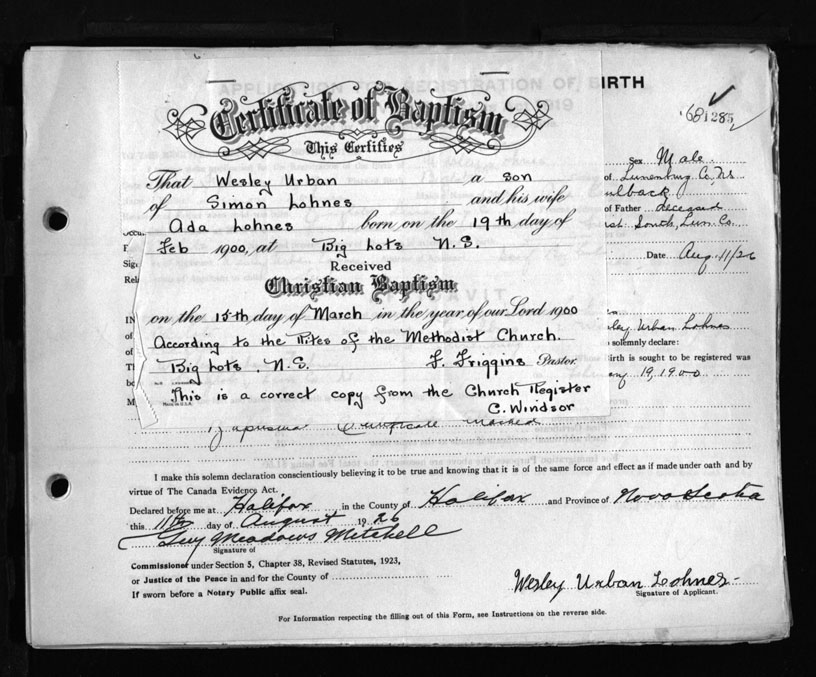 APPLICATION REGISTRATION OF BIRTH
Certificate of Baptism
This Certifies
That Wesley Urban a son
of Simon Lohnes and his wife
Ada Lohnes born on the 19th day of
Feb 1900, at Big Lots N.S.
Received
Christian Baptism
on the 15th day of March in the year of our Lord 1900
According to the Rites of the Methodist Church.
Big Lots, N.S. F. Friggins Pastor
This is a correct copy from the Church Register
C. Windsor
Sex Male
of Lunenburg Co, NS
of Father deceased
South, Lun Co.
Date Aug 11/26
Wesley Urban Lohnes
solemnly declare:
Birth is sought to be registered was
19, 1900
Certificate marked
I make this solemn declaration conscientiously believing it to be true and knowing that it is of the same force and effect as if made under oath and by
virtue of The Canada Evidence Act.
Declared before me at Halifax in the County of Halifax and Province of Nova Scotia
this 11th day of August 1926
Guy Meadows Mitchell
Signature of
Commissioner under Section 5, Chapter 38, Revised Statutes, 1923,
or Justice of the Peace in and for the County of
If sworn before a Notary Public affix seal.
Wesley Urban Lohnes
Signature of Applicant.
For Information respecting the filling out of this Form, see Instructions on the reverse side.